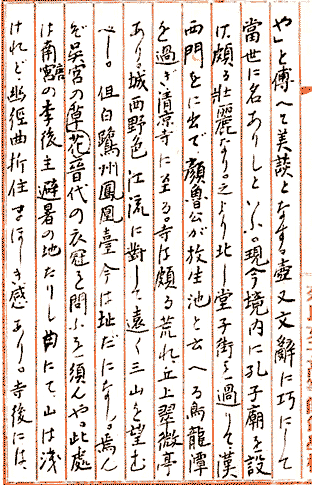 や」と傳へて美談となせる壺又文辭に巧にして
當世に名ありしと云ふ。現今境内に孔子廟を設
け、頗る壯麗なり。之より北し堂子街を過りて漢
西門をに出で、顏魯公が放生池と云へる烏龍潭
を過ぎ清凉寺に至る。寺は頗る荒れ丘上翠微亭
あり。城西野色江流に對して遠く三山を望む
べし。但白鷺州鳳凰臺今は址だになし。焉ん
ぞ吳宮の草花晉代の衣冠を問ふを須んや。此處
は南唐宮の李後主避暑の地たりし由にて、山は淺
けれど幽徑曲折住せほしき感あり。寺後には、